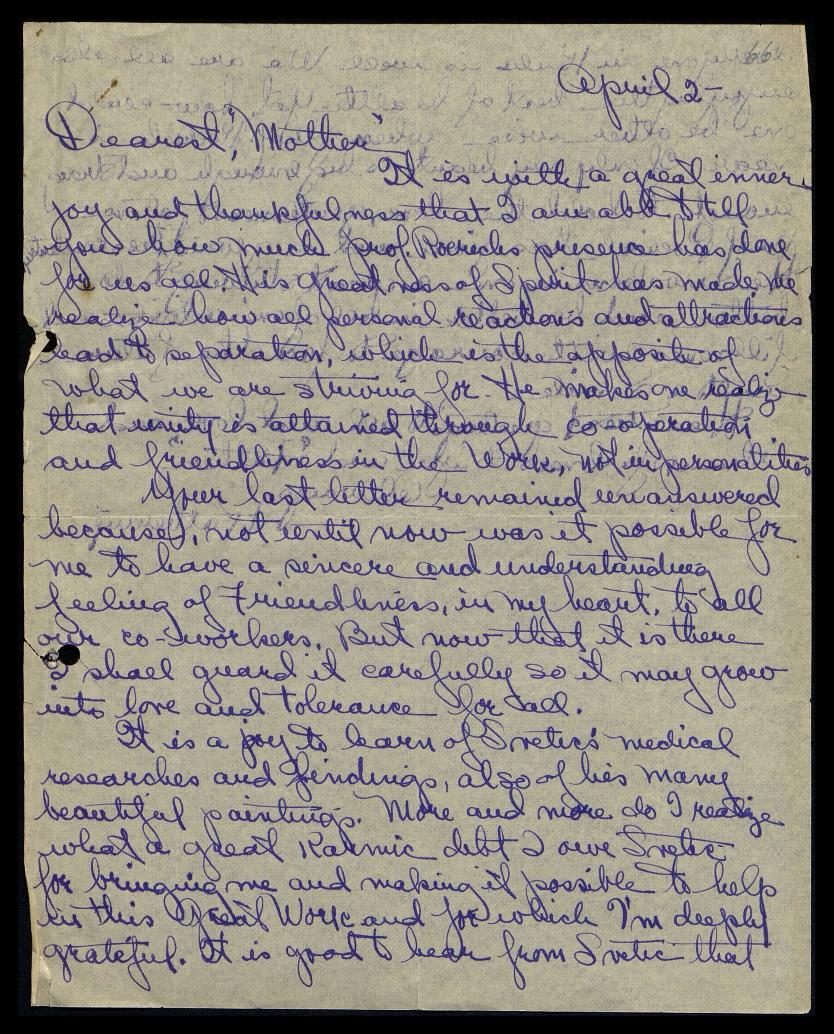 66
April 2-
Dearest, "Mother"
It is with a great enner
joy and thankfulness that I am able to tell
you how much prof. Roerichs presence has done
for us all. His greatness of Spirit has made me
realize how all personal reactions and attractions
lead to separation, which is the opposite of
what we are striving for. He makes one realize
that unity is attained through co-operation
and friendliness in the Work, not in personalities
Your last letter remained unanswered
because, not until now was it possible for
me to have a sincere and understanding
feeling of Friendliness, in my heart, to all
our co-workers. But now that it is there
I shall guard it carefully so it may grow
into love and tolerance for all.
It is a joy to learn of Svetic's medical
researches and findings, also of his many
beautiful paintings. More and more do I realize
what a great Karmic debt I owe Svetic
for bringing me and making it possible to help
in this Great Work and for which I'm deeply
grateful. It is good to hear from Svetic that